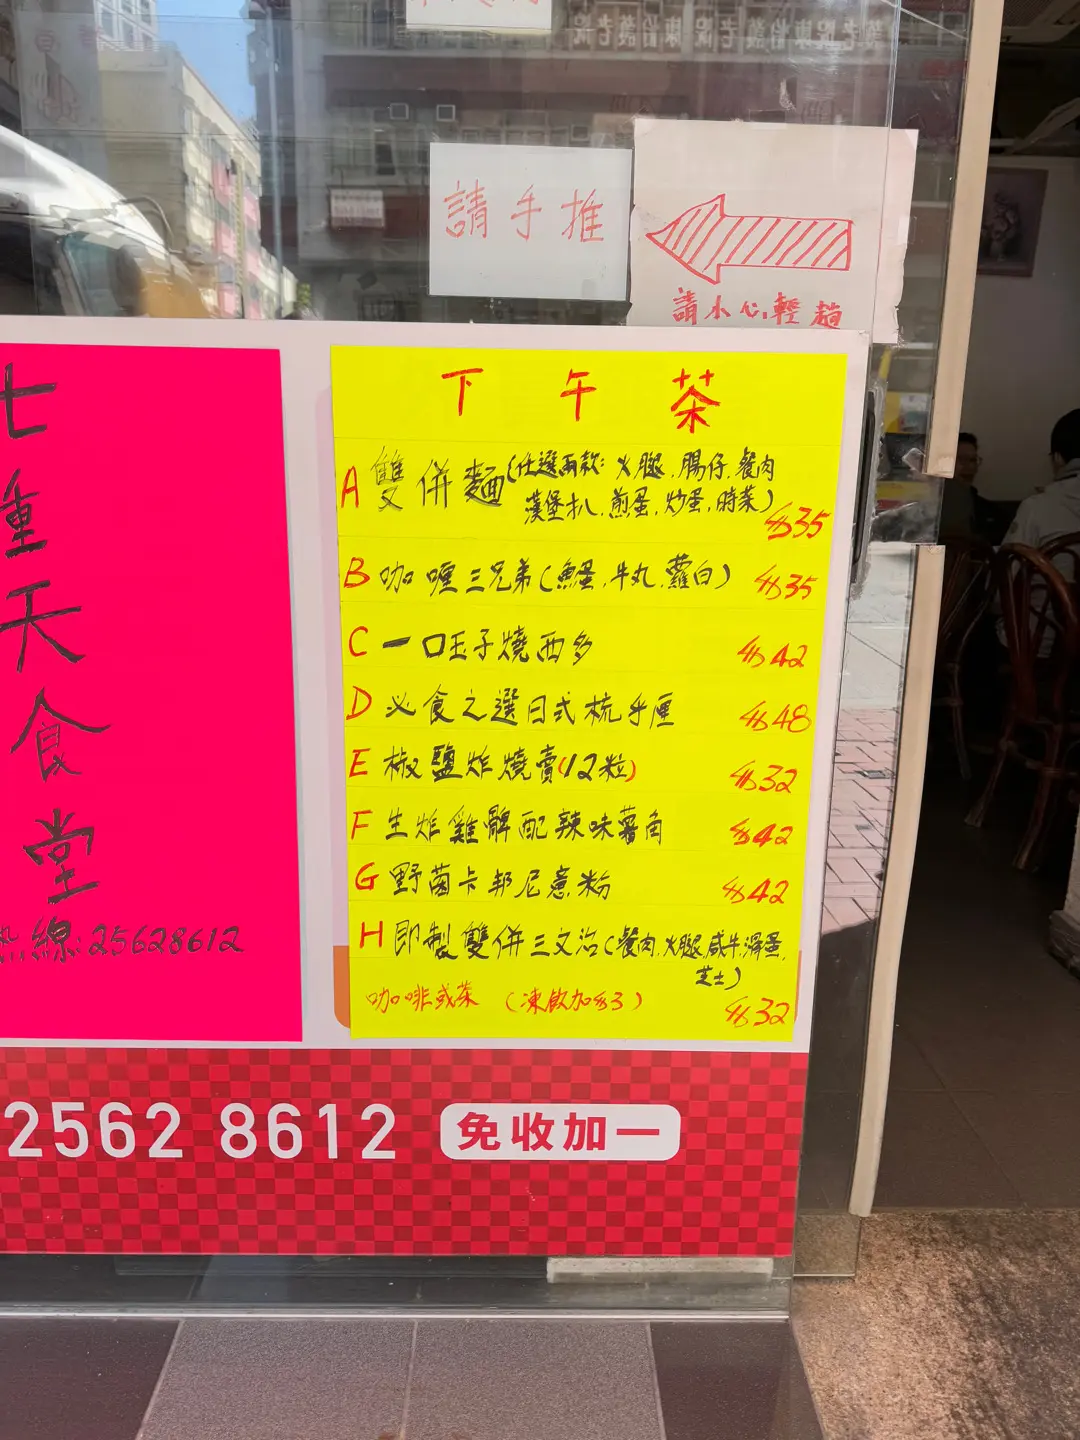 請手推
請小心輕趟
七重天食堂
熱線:25628612
下午茶
A 雙併麵(任選兩款: 火腿, 腸仔, 餐肉
漢堡扒, 煎蛋, 炒蛋, 時菜) $35
B 咖喱三兄弟(魚蛋, 牛丸, 蘿白) $35
C 一口玉子燒西多 $42
D 必食之選日式梳乎厘 $48
E 椒鹽炸燒賣(12粒) $32
F 生炸雞髀配辣味薯角 $42
G 野菌卡邦尼意粉 $42
H 即製雙併三文治(餐肉, 火腿, 咸牛, 滑蛋,
芝士)
咖啡或茶 (凍飲加$3) $32
2562 8612 免收加一